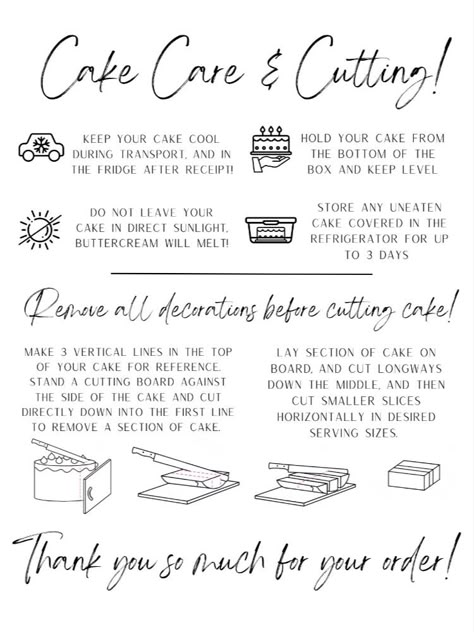 Cake Care & Cutting!
KEEP YOUR CAKE COOL
DURING TRANSPORT, AND IN
THE FRIDGE AFTER RECEIPT!
HOLD YOUR CAKE FROM
THE BOTTOM OF THE
BOX AND KEEP LEVEL
DO NOT LEAVE YOUR
CAKE IN DIRECT SUNLIGHT,
BUTTERCREAM WILL MELT!
STORE ANY UNEATEN
CAKE COVERED IN THE
REFRIGERATOR FOR UP
TO 3 DAYS
Remove all decorations before cutting cake!
MAKE 3 VERTICAL LINES IN THE TOP
OF YOUR CAKE FOR REFERENCE.
STAND A CUTTING BOARD AGAINST
THE SIDE OF THE CAKE AND CUT
DIRECTLY DOWN INTO THE FIRST LINE
TO REMOVE A SECTION OF CAKE.
LAY SECTION OF CAKE ON
BOARD, AND CUT LONGWAYS
DOWN THE MIDDLE, AND THEN
CUT SMALLER SLICES
HORIZONTALLY IN DESIRED
SERVING SIZES.
Thank you so much for your order!